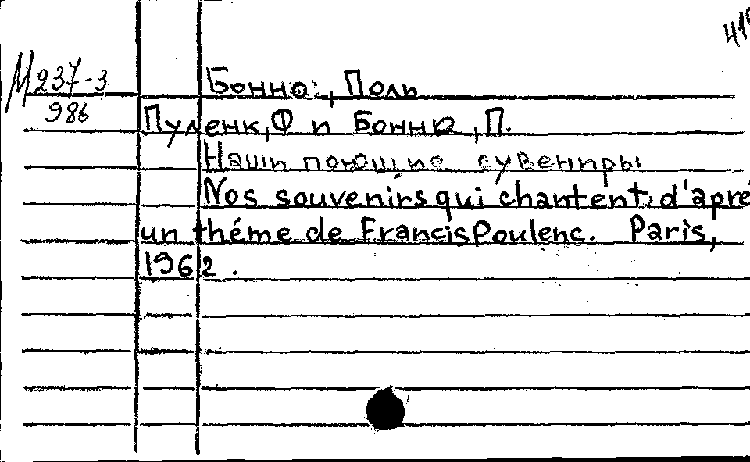 М237-3
986
Бонно, Поль
Пуленк, Ф и Бонно, П.
Наши поющие сувениры
Nos souvenirs qui chantent, d'apré
un théme de Francis Poulenc. Paris,
1962.